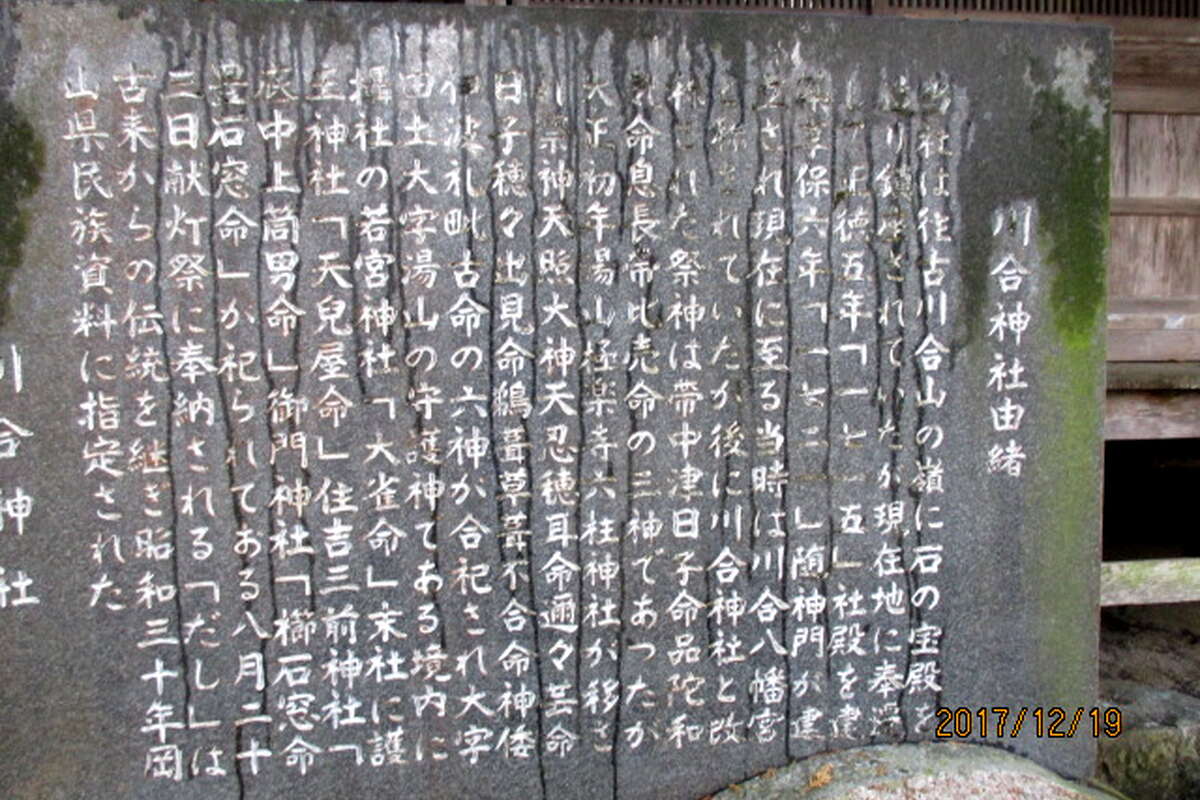 川合神社由緒
当社は往古川合山の嶺に石の宝殿を
造り鎮座されていたが現在地に奉遷
正徳五年「一七一五」社殿を建
享保六年「一七二一」随神門が建
立され現在に至る当時は川合八幡宮
と称されていたが後に川合神社と改
称された祭神は帯中津日子命品陀和
気命息長帯比売命の三神であつたが
大正初年湯山極楽寺六柱神社が移さ
れ祭神天照大神天忍穂耳命邇々芸命
日子穂々出見命鵜葺草葺不合命神倭
伊波礼毗古命の六神が合祀され大字
田土大字湯山の守護神てある境内に
摂社の若宮神社「大雀命」末社に護
王神社「天兒屋命」住吉三前神社「
底中上筒男命」御門神社「櫛石窓命
豊石窓命」が祀られておる八月二十
三日献灯祭に奉納される「だし」は
古来からの伝統を継ぎ昭和三十年岡
山県民族資料に指定された
川合神社
2017/12/19